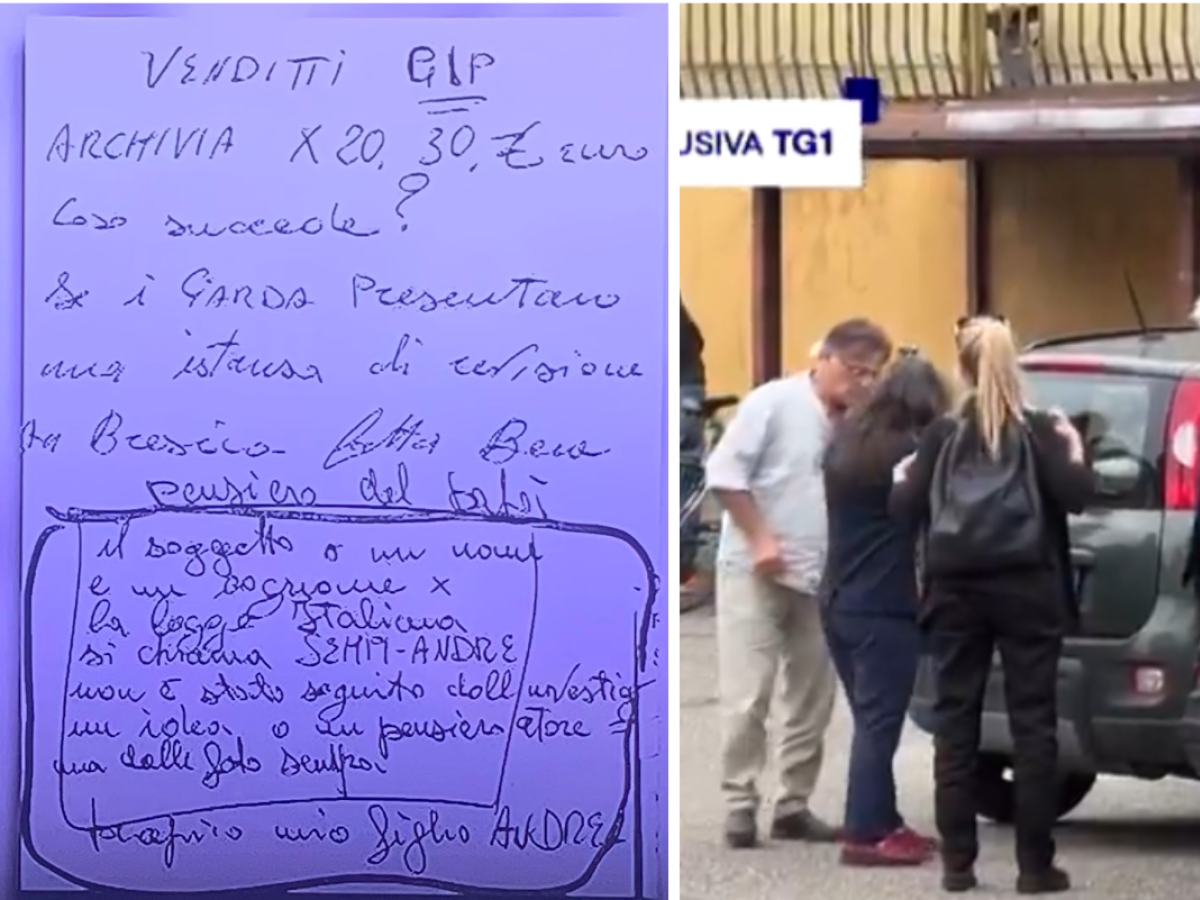 VENDITTI GIP
ARCHIVIA X 20, 30, € euro
Cosa succede?
Se i GARDA Presentano
una istansa di revisione
Brescia fatta Bene
pensiero del
il soggetto o un nome
e un cognome x
la legge Italiana
si chiama SEMPI-ANDRE
non è stato seguito dall investig
un idea o un pensiero atore =
ma dalle foto sembra
proprio mio figlio ANDREA
USIVA TG1